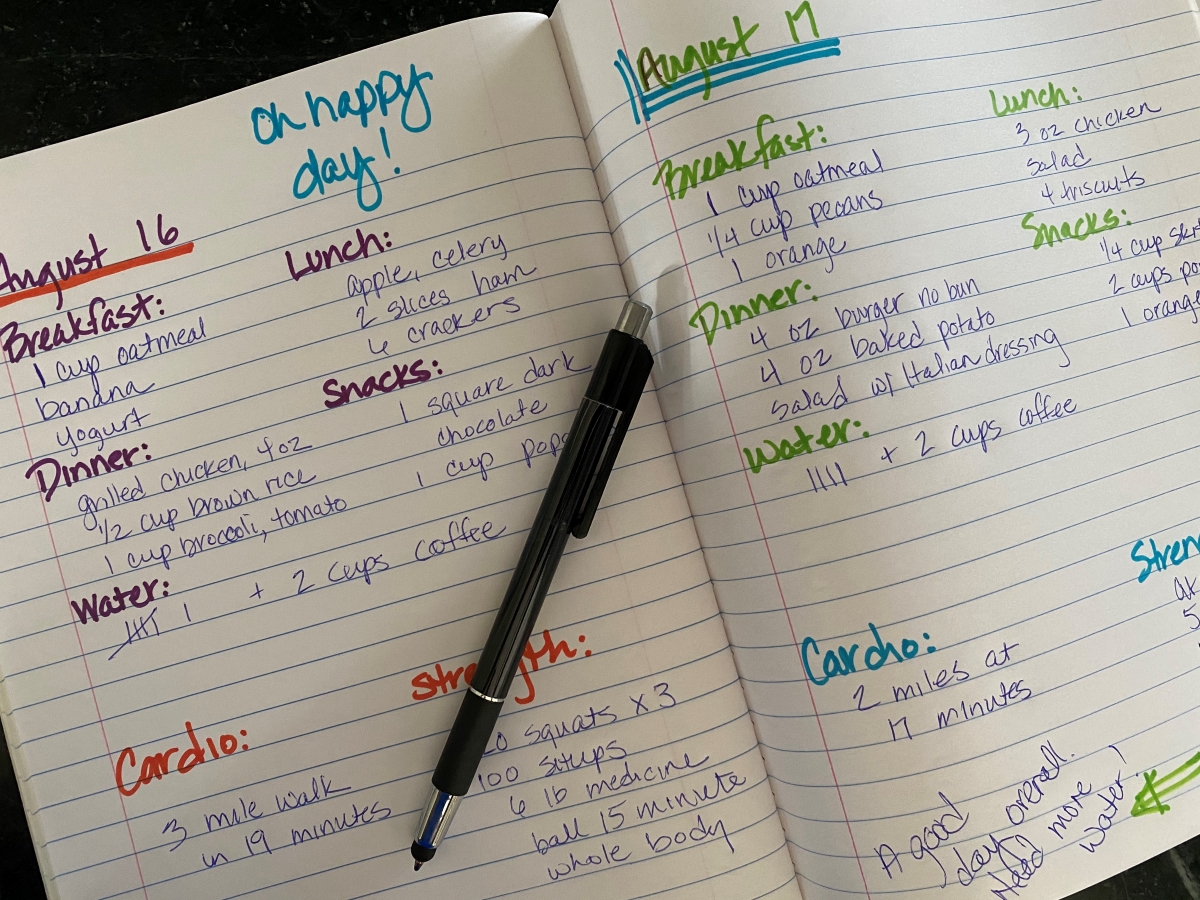 oh happy
day!
August 16
Breakfast:
1 cup oatmeal
banana
yogurt
Lunch:
apple, celery
2 slices ham
6 crackers
Snacks:
1 square dark
chocolate
1 cup
Dinner:
grilled chicken, 4oz
1/2 cup brown rice
1 cup broccoli, tomato
Water:
1 + 2 cups coffee
Cardio:
3 mile walk
in 19 minutes
squats x 3
100 situps
6 lb medicine
ball 15 minute
whole body
August 17
Breakfast:
1 cup oatmeal
1/4 cup pecans
1 orange
Lunch:
3 oz chicken
salad
4 triscuits
Snacks:
1/4 cup
2 cups
1 orange
Dinner:
4 oz burger no bun
4 oz baked potato
salad w/ Italian dressing
Water:
1111 + 2 cups coffee
Cardio:
2 miles at
17 minutes
A good
day overall.
Need more
water!